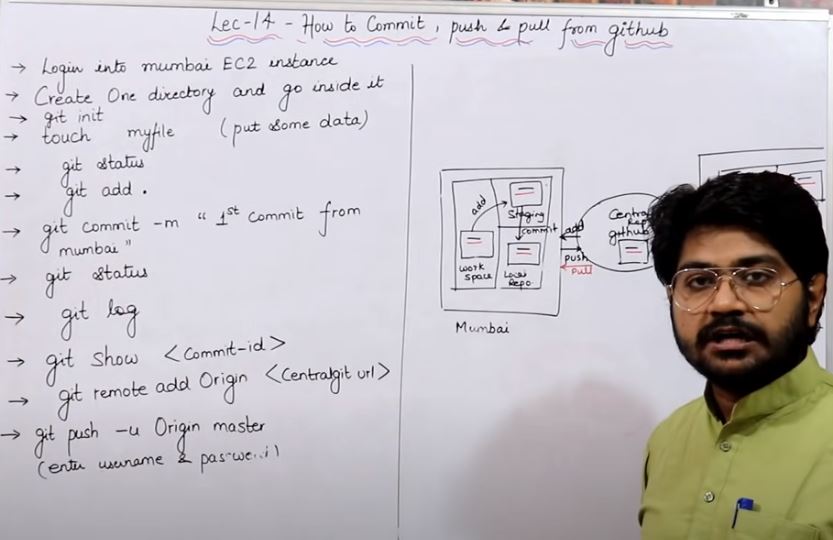 Lec-14 - How to Commit, push & pull from github
→ Login into mumbai EC2 instance
→ Create One directory and go inside it
→ git init
→ touch myfile (put some data)
→ git status
→ git add .
→ git commit -m "1st commit from
mumbai"
→ git status
→ git log
→ git show <Commit-id>
→ git remote add Origin <Centralgit url>
→ git push -u Origin master
(enter username &
add
Staging
commit
work
space
Local
Repo
Mumbai
add
push
pull
github